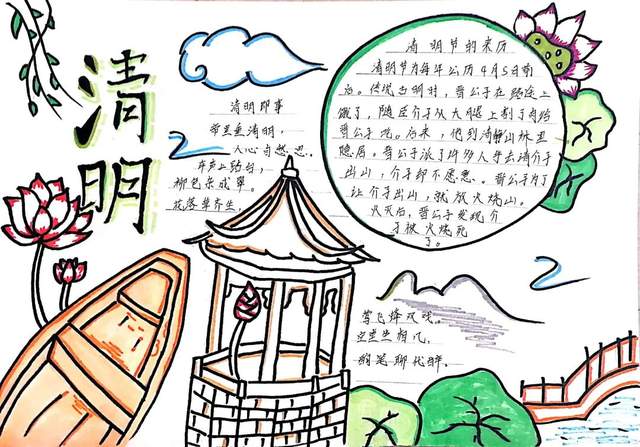 清明
清明即事
帝里重清明,
人心自愁思..
车声上路合,
柳色东城翠.
花落草齐生,
清明节的来历
清明节为每年公历4月5日前
后。传说 时,晋公子在路途上
饿了,随臣介子从大腿上割了肉给
晋公子吃。后来,他到清静山林里
隐居。晋公子派了许多人手去请介子
出山,介子却不愿意。晋公子为了
让介子出山,就放火烧山。
火灭后,晋公子发现介
子被火烧死
了。
莺飞 双戏.
坐相忆,
聊代醉.